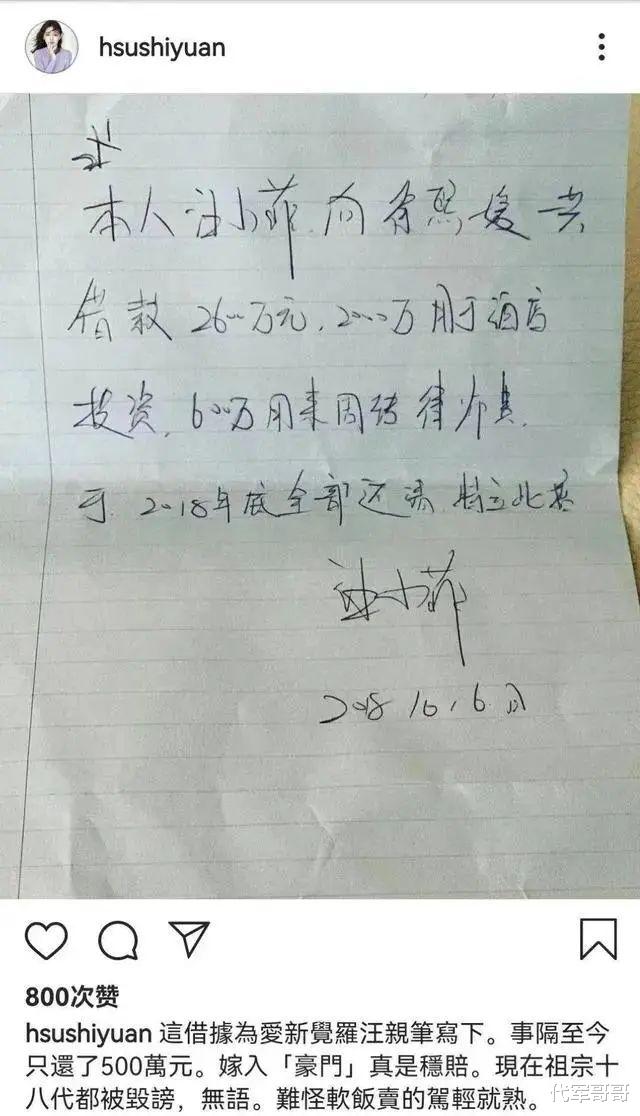 hsushiyuan
本人汪小菲.向徐熙媛共
借款2600万元,2000万用于酒店
投资,600万用来周转律师费.
于.2018年底全部还清.特立此据
汪小菲
2018.10.6.日
800次赞
hsushiyuan 這借據為愛新覺羅汪親筆寫下。事隔至今
只還了500萬元。嫁入「豪門」真是穩賠。現在祖宗十
八代都被毀謗，無語。難怪軟飯賣的駕輕就熟。
代军哥哥